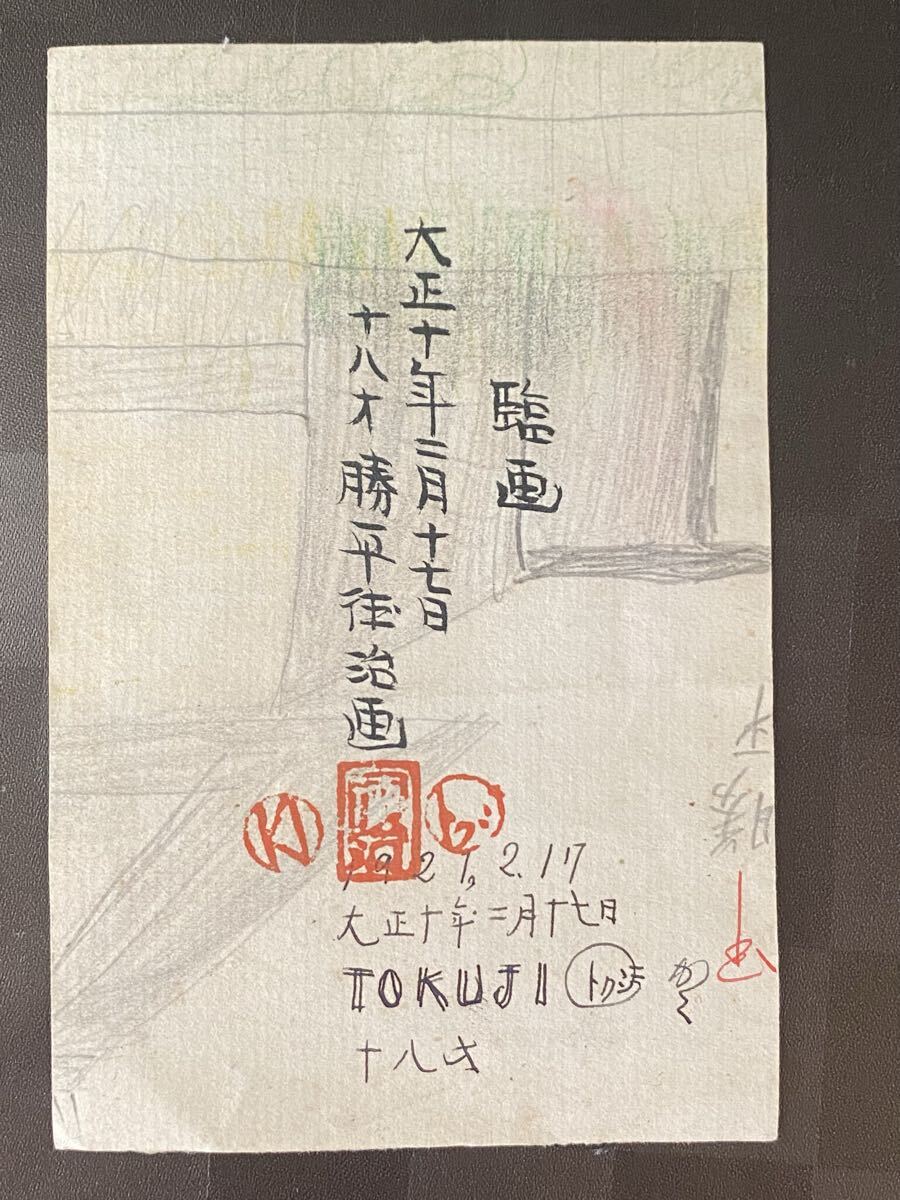 臨画
大正十年二月十七日
十八才 勝平徳治画
徳治
1921, 2.17
大正十年二月十七日
TOKUJI
トクジ
かく
十八才
勝平